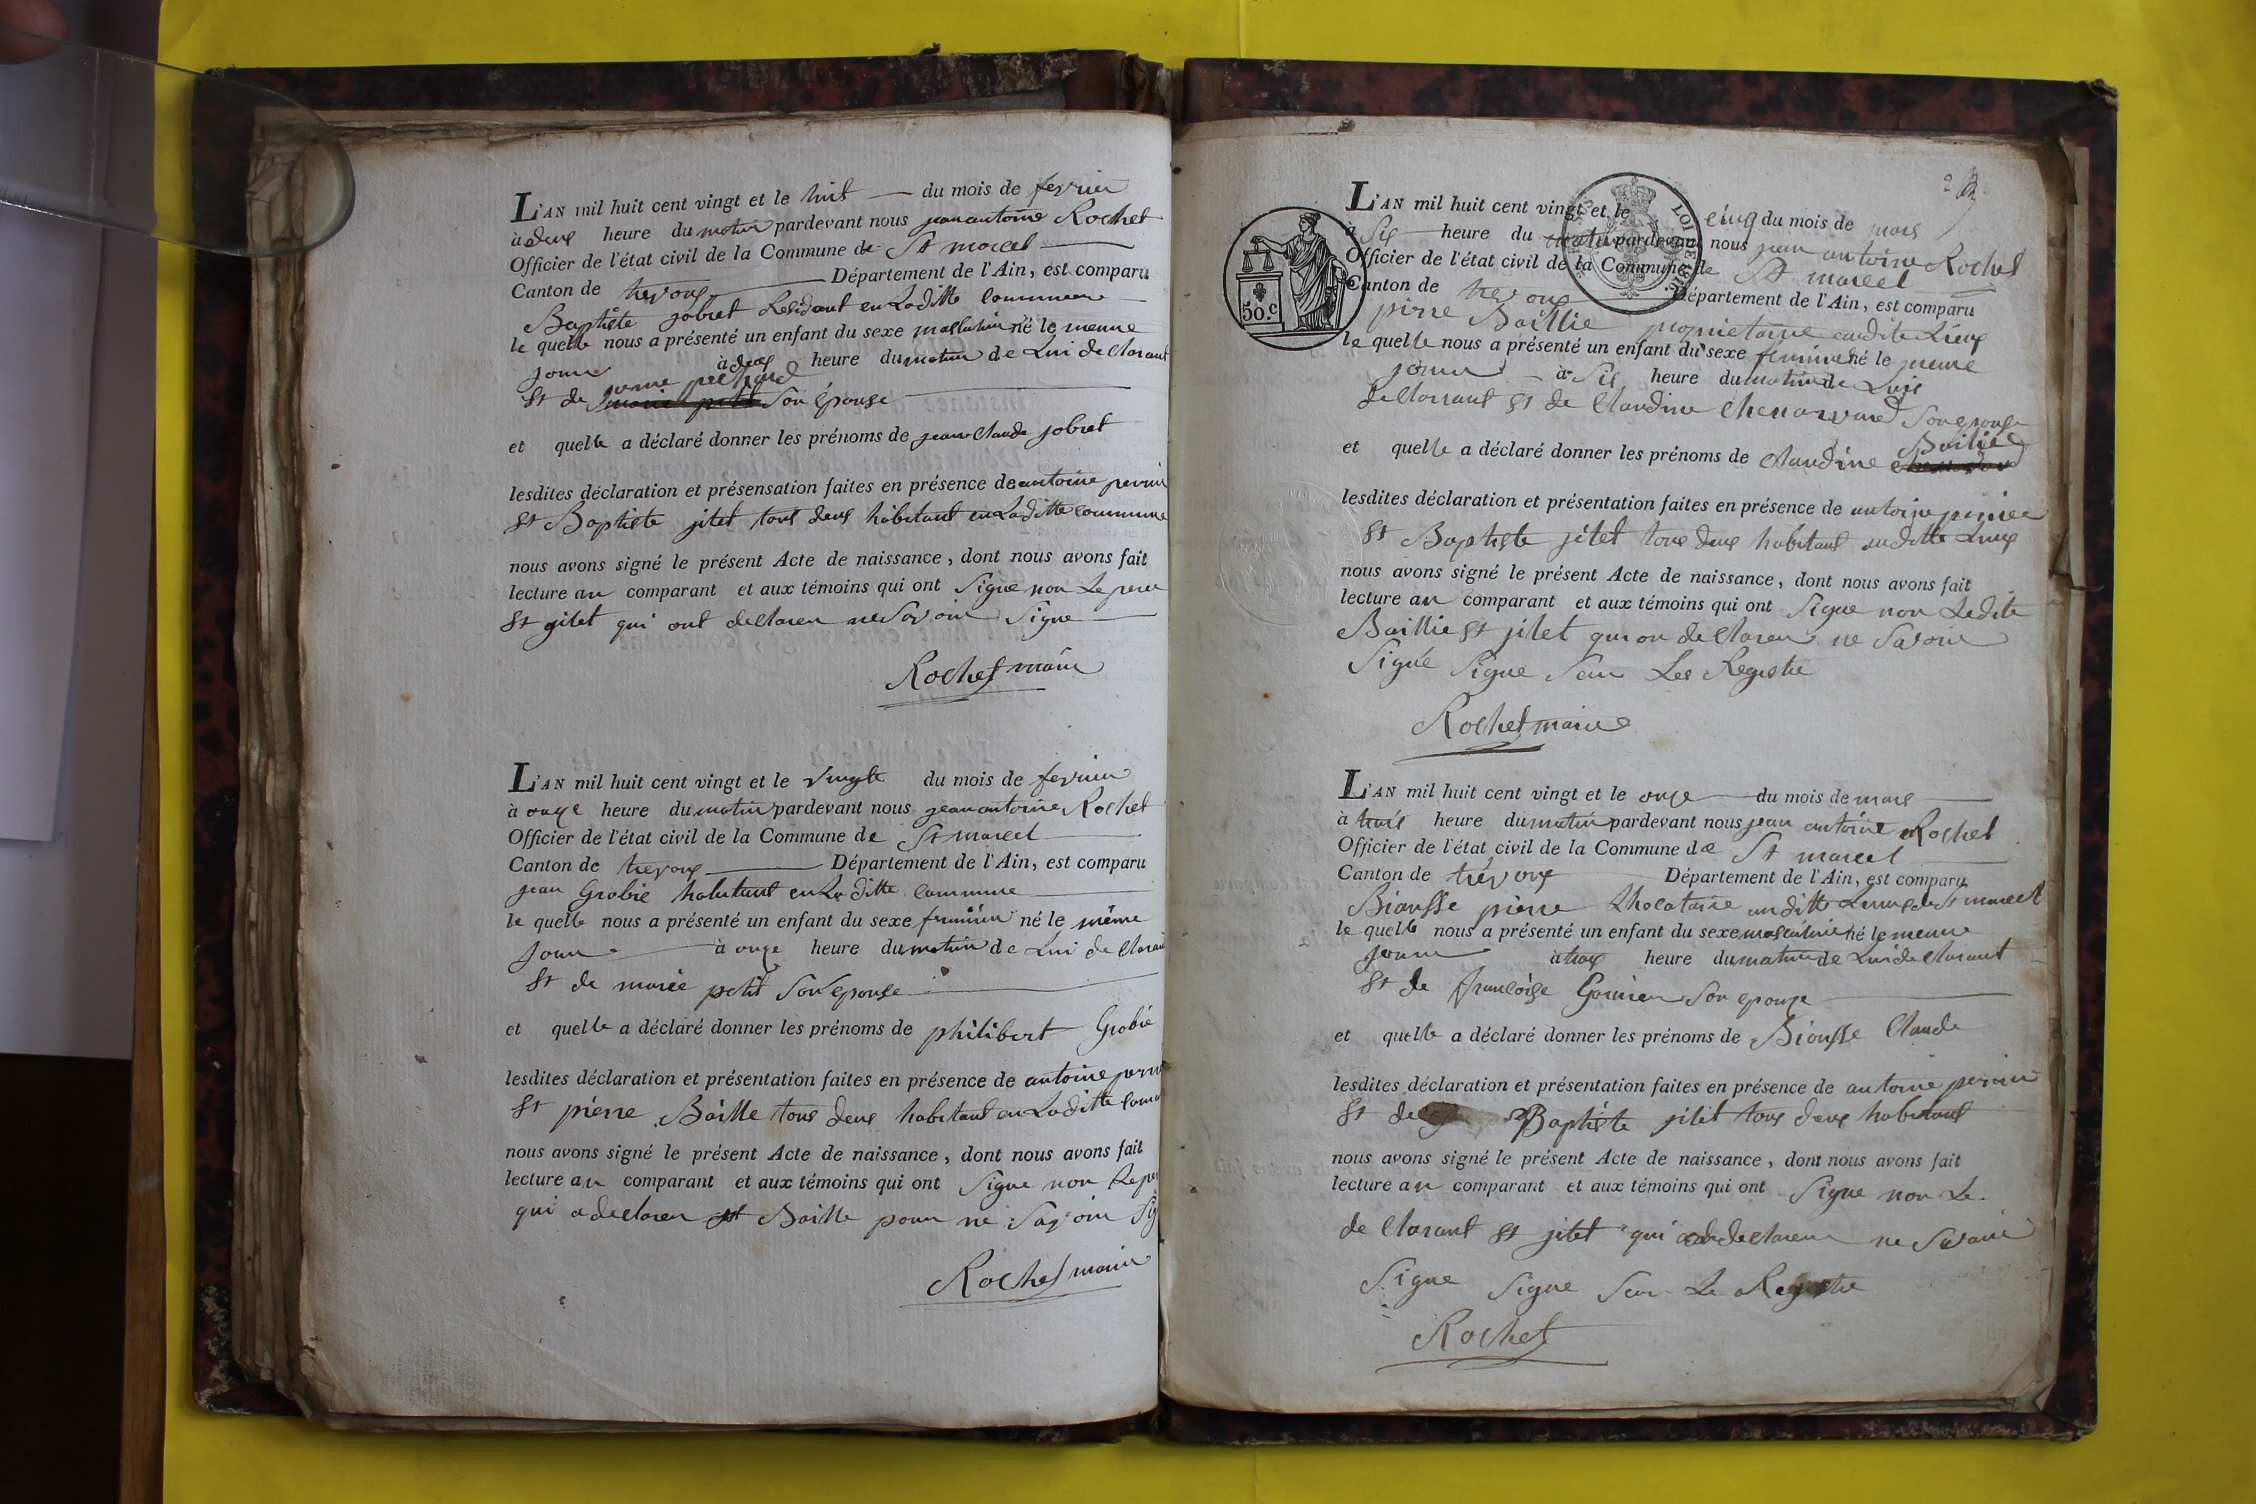 L'AN mil huit cent vingt et le huit du mois de fevrier
à deux heure du matin pardevant nous jean antoine Rochet
Officier de l'état civil de la Commune de St marcel
Canton de trevoux Département de l'Ain, est comparu
Baptiste jobret Residant en Laditte commune
le quelle nous a présenté un enfant du sexe masculin né le meme
jour à deux heure du matin de Lui declarant
Et de jeanne Son épouse
et quelle a déclaré donner les prénoms de jean claude jobret
lesdites déclaration et présensation faites en présence de antoine perrin
Et Baptiste jitet tous deux habitant en Laditte commune
nous avons signé le présent Acte de naissance, dont nous avons fait
lecture au comparant et aux témoins qui ont Signe non Le pere
Et jitet qui ont declarer ne Savoir Signe
Rochet maire
L'AN mil huit cent vingt et le vingte du mois de fevrier
à onze heure du matin pardevant nous jean antoine Rochet
Officier de l'état civil de la Commune de St marcel
Canton de trevoux Département de l'Ain, est comparu
jean Grobie habitant en La ditte commune
le quelle nous a présenté un enfant du sexe feminin né le même
jour à onze heure du matin de Lui de
Et de marie petit Son epouse
et quelle a déclaré donner les prénoms de philibert Grobie
lesdites déclaration et présentation faites en présence de antoine
Et pierre Baille tous deux habitant en Laditte
nous avons signé le présent Acte de naissance, dont nous avons fait
lecture au comparant et aux témoins qui ont Signe non Le
qui a declarer Et Baille pour ne Savoir
Rochet maire
L'AN mil huit cent vingt et le cinq du mois de mars
à Six heure du matin pardevant nous jean antoine Rochet
Officier de l'état civil de la Commune de St marcel
Canton de trevoux Département de l'Ain, est comparu
pirre Baillie proprietaire
le quelle nous a présenté un enfant du sexe feminin né le meme
jour à Six heure du matin de Lui
declarant Et de Claudine Son epouse
et quelle a déclaré donner les prénoms de claudine Bailiée
lesdites déclaration et présentation faites en présence de antoine
Et Baptiste jitet tous deux habitant
nous avons signé le présent Acte de naissance, dont nous avons fait
lecture au comparant et aux témoins qui ont Signe non Ledit
Baillie Et jitet qui on declarer ne Savoir
Signé Signe Sur Les Registre
Rochet maire
50.c
L'AN mil huit cent vingt et le onze du mois de mars
à trois heure du matin pardevant nous jean antoine Rochet
Officier de l'état civil de la Commune de St marcel
Canton de trévoux Département de l'Ain, est comparu
Biousse pierre St marcel
le quelle nous a présenté un enfant du sexe masculin né le meme
jour à heure du matin de Lui declarant
Et de françoise Son epouze
et quelle a déclaré donner les prénoms de Biousse Claude
lesdites déclaration et présentation faites en présence de antoine perrin
Et de Baptiste jitet tous deux habitant
nous avons signé le présent Acte de naissance, dont nous avons fait
lecture au comparant et aux témoins qui ont Signe non Le
declarant Et jitet qui declarer ne Savoir
Signe Signe Sur Le Registre
Rochet